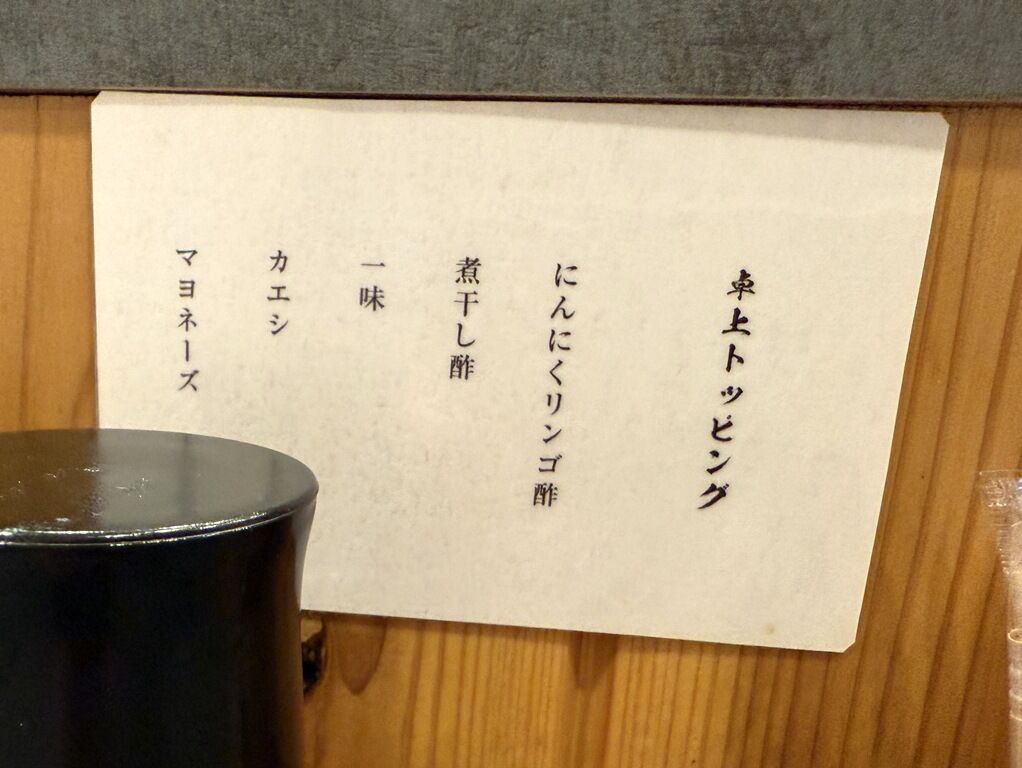 卓上トッピング
にんにくリンゴ酢
煮干し酢
一味
カエシ
マヨネーズ